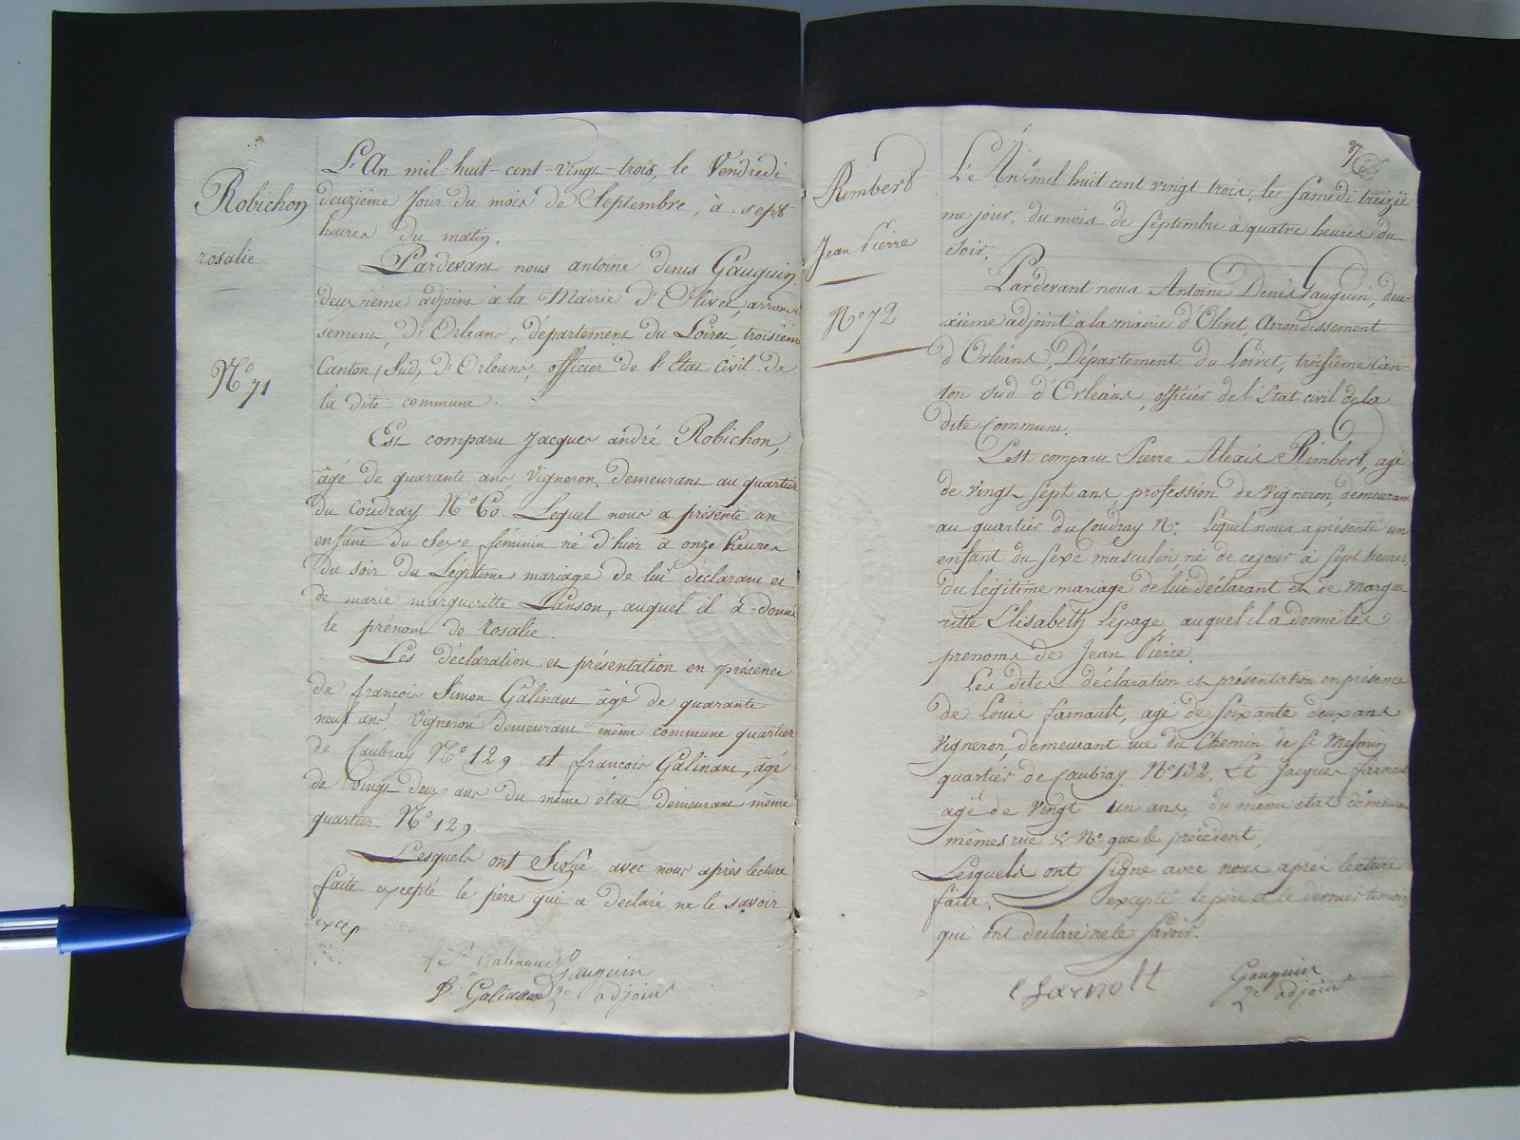 Robichon
rosalie
N.º 71
L'An mil huit-cent-vingt-trois, le Vendredi
deuzième Jour du mois de Septembre, à sept
heures du matin.
Pardevant nous antoine denis Gauguin
deuxième adjoint à la Mairie d'Olivet, arron
sement, d'Orleans, département du Loiret, troisième
Canton (Sud) d'Orleans, officier de l'Etat Civil de
la dite commune.
Est comparu Jacques andré Robichon,
âgé de quarante ans Vigneron, demeurant au quartier
du Coudray N.º 60. Lequel nous a présenté un
enfant du Sexe féminin né d'hier à onze heures
du soir du Légitime mariage de lui déclarant et
de marie margueritte Panson, auquel il a donné
le prénom de rosalie.
Les déclaration et présentation en présence
de françois Simon Galinant âgé de quarante
neuf ans, Vigneron demeurant même commune quartier
de Caubray N.º 129 et françois Galinant, âgé
de Vingt deux ans du même état demeurant même
quartier N.º 129.
Lesquels ont Signé avec nous après lecture
faite excepté le père qui a déclaré ne le savoir
excep
f S Galinant Gauguin
f. Galinant 2e adjoint
Rembert
Jean Pierre
N.º 72
L'An mil huit cent vingt trois, le Samedi treiziè
me jour, du mois de Septembre à quatre heures du
Soir,
Pardevant nous Antoine Denis Gauguin, deu-
xième adjoint a la mairie d'Olivet Arrondissement
d'Orléans, Département du Loiret, troisième Can-
ton Sud d'Orléans, officier de l'Etat civil de la
dite Commune.
Est comparu Pierre Alexis Rimbert, agé
de vingt Sept ans, profession de Vigneron, demeurant
au quartier du Coudray N.º Lequel nous a présenté un
enfant du Sexe masculin né de ce jour à Sept heures,
du légitime mariage de lui déclarant et de Margue
ritte Elisabeth Lepage auquel il a donné les
prenoms de Jean Pierre.
Les dites déclaration et présentation en présence
de Louis farnault, agé de Soixante deux ans
Vigneron, demeurant rue du Chemin de St Mesmin
quartier de Caubray N.º 132. Et Jacques farnault
agé de Vingt un ans, du meme etat demeurant
mêmes rue & N.º que le précédent,
Lesquels ont Signé avec nous après lecture
faite. excepté le père et le dernier temoin
qui ont declaré ne le Savoir.
l farnolt Gauguin
2e adjoint